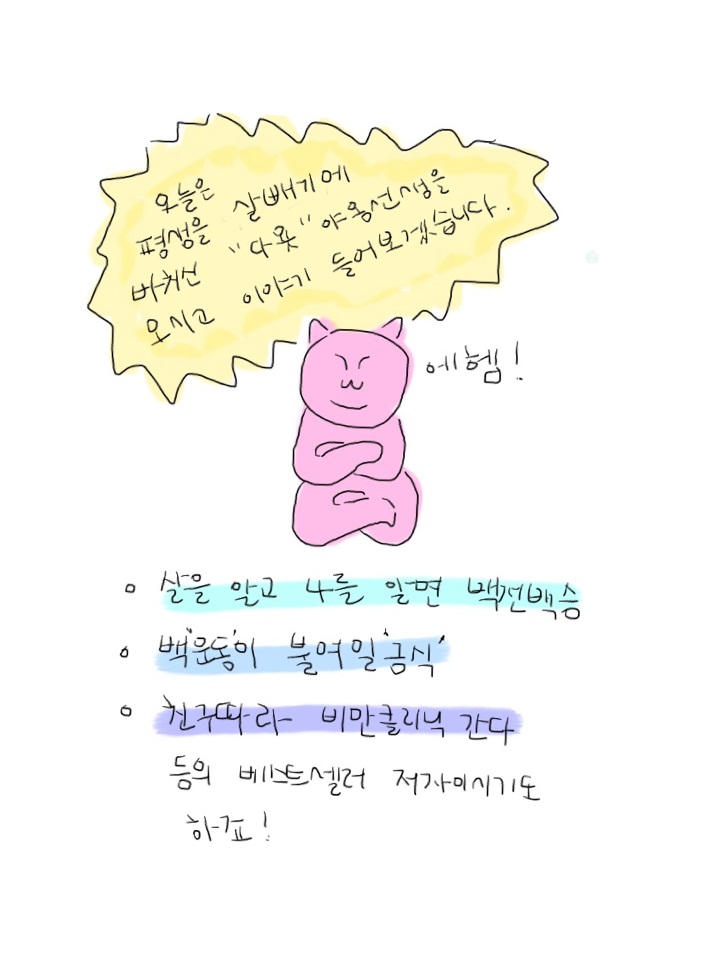 오늘은
평생을 살빼기에
바치신 "다욧" 야옹선생을
모시고 이야기 들어보겠습니다.
에헴!
살을 알고 나를 알면 백전백승
백'운동'이 불여일'금식'
친구따라 비만클리닉 간다
등의 베스트셀러 저자이시기도
하죠!